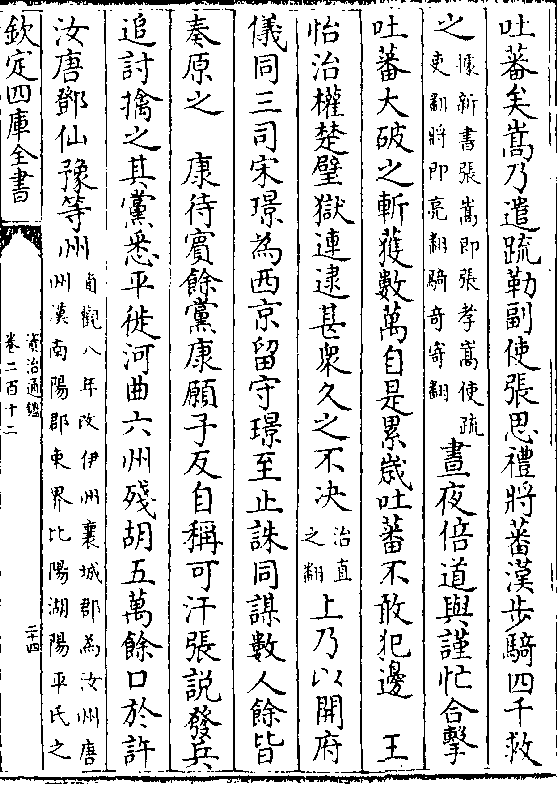 吐蕃矣嵩乃遣疏勒副使張思禮將蕃漢步騎四千救
之據新書張嵩即張孝嵩使疏吏翻將即亮翻騎奇寄翻晝夜倍道與謹忙合擊
吐蕃大破之斬獲數萬自是累歲吐蕃不敢犯邊　王
怡治權楚璧獄連逮甚衆久之不决治直之翻上乃以開府
儀同三司宋璟為西京留守璟至止誅同謀數人餘皆
奏原之　康待賓餘黨康願子反自稱可汗張説發兵
追討擒之其黨悉平徙河曲六州殘胡五萬餘口於許
汝唐鄧仙豫等州貞觀八年改伊州襄城郡為汝州唐州漢南陽郡東界比陽湖陽平氏之
欽定四庫全書
資治通鑑
卷二百十二
二十四